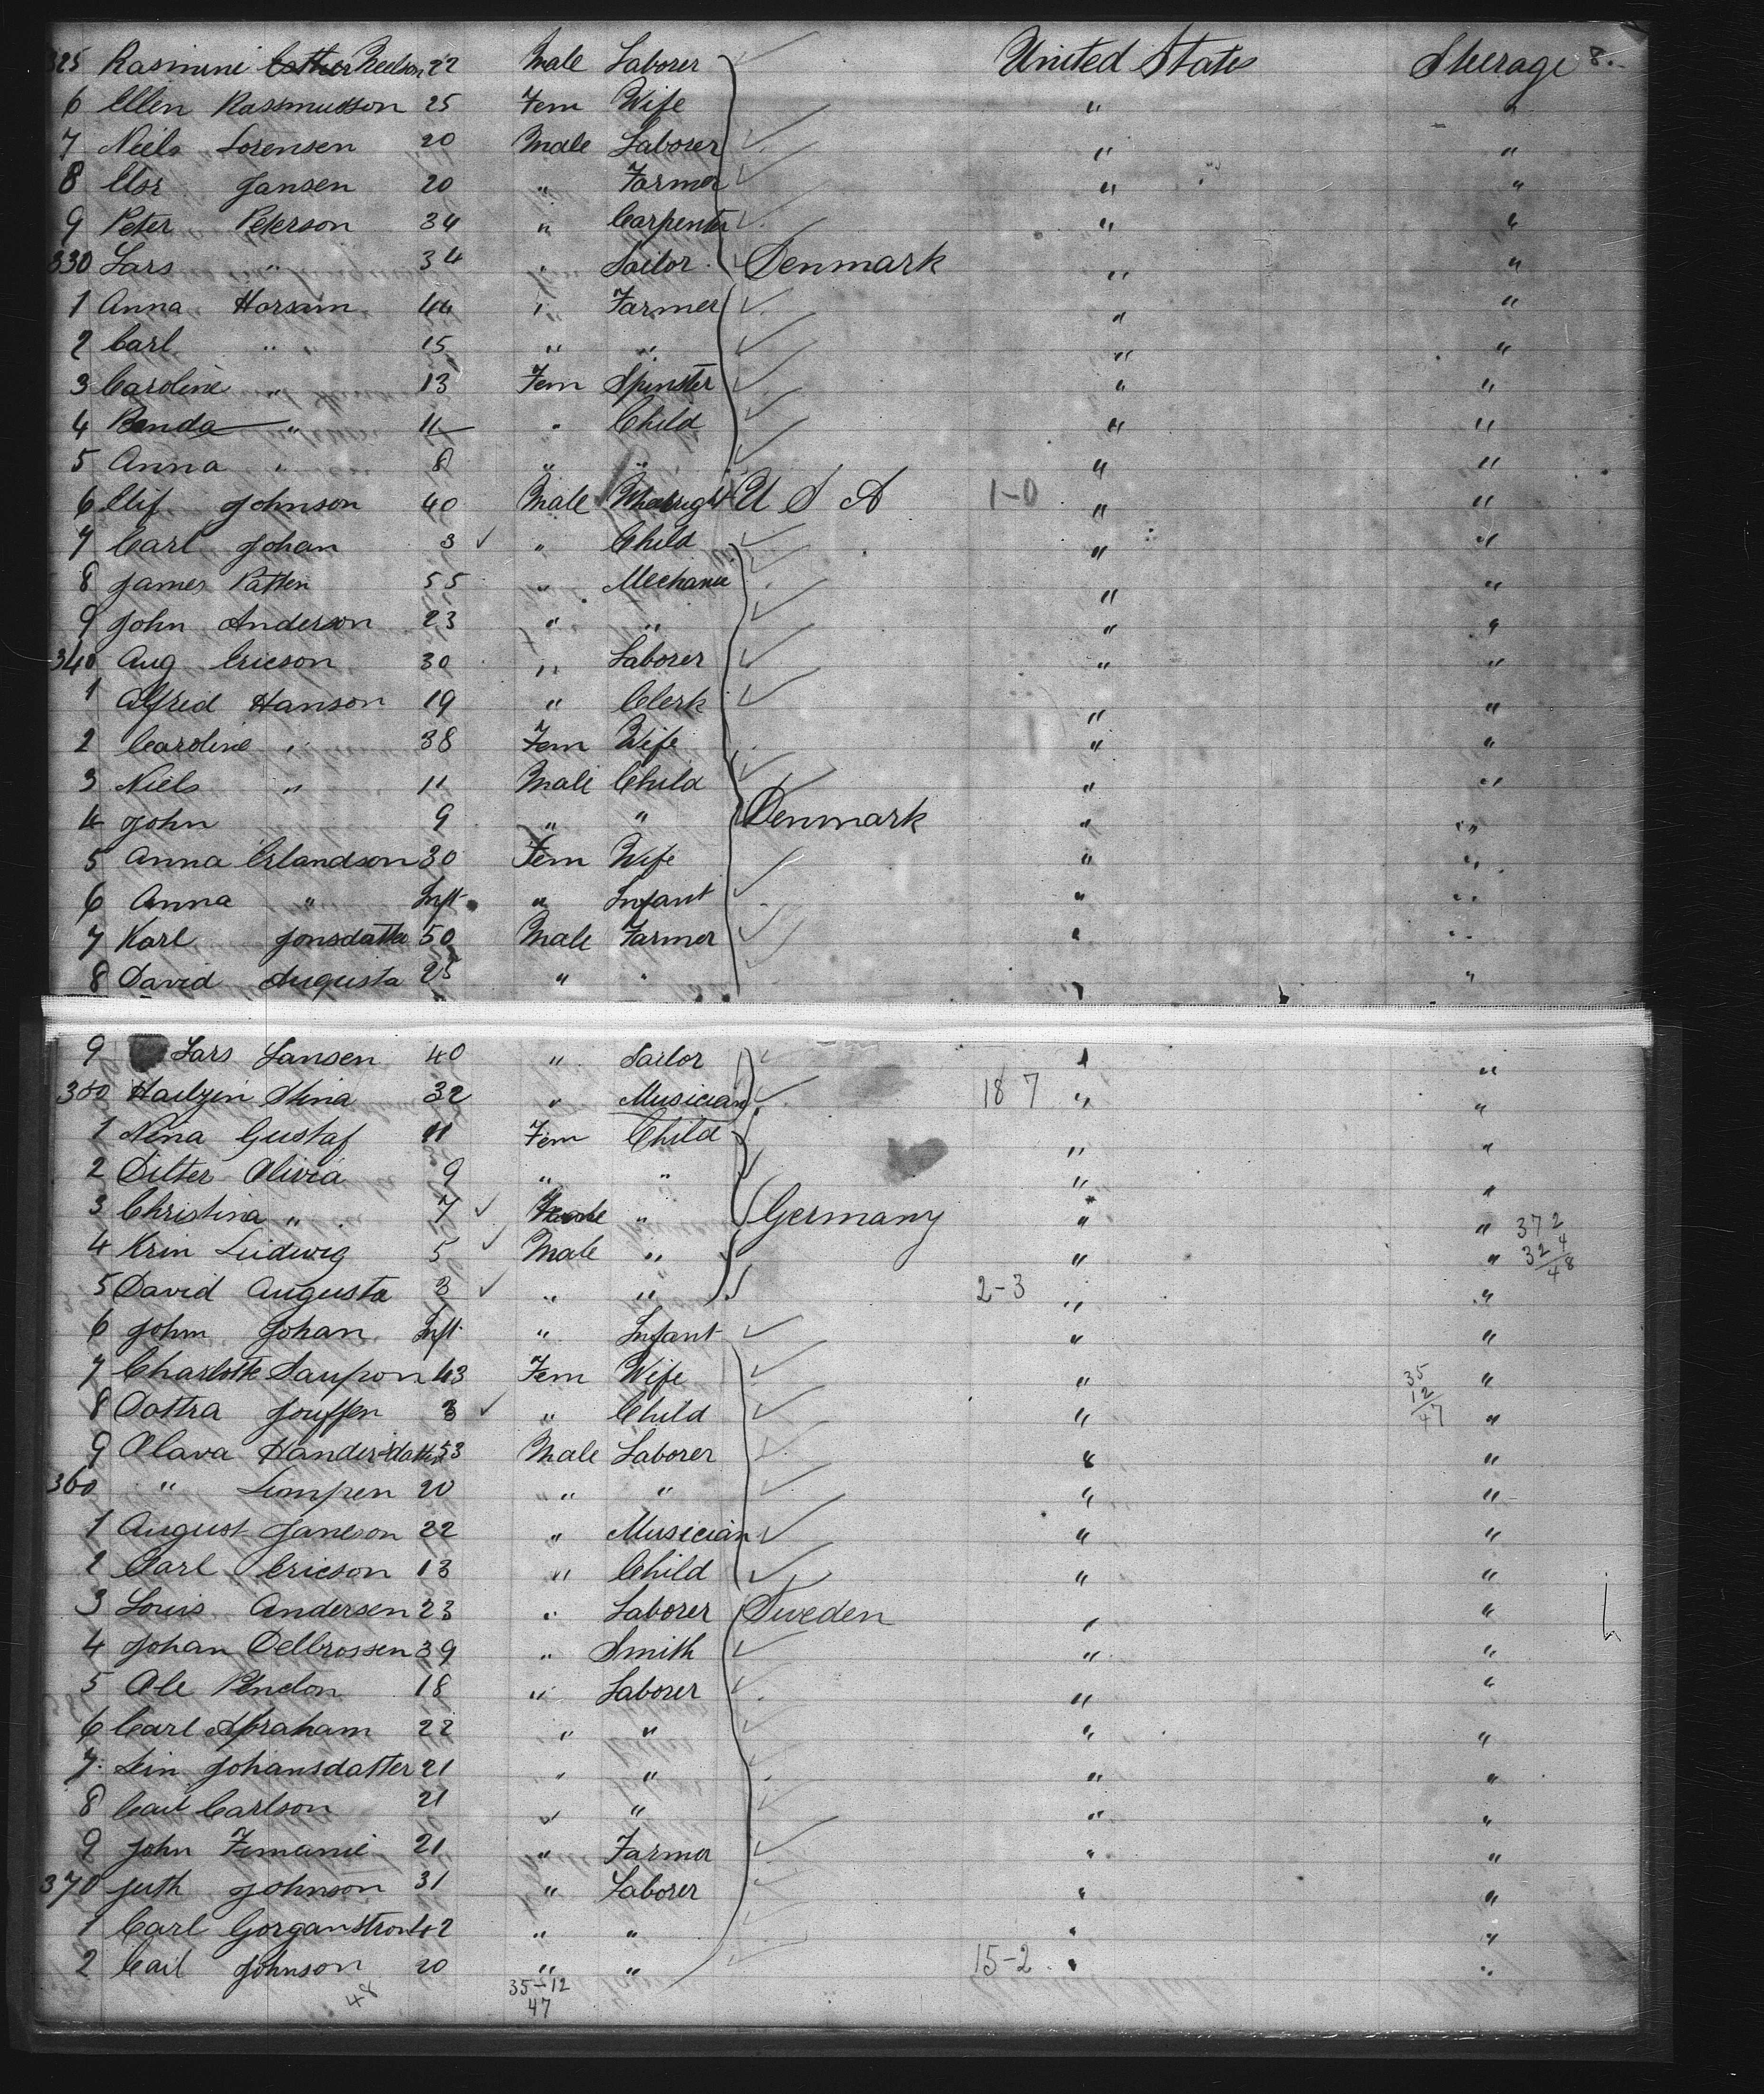 325 Rasmine Neelson 22 Male Laborer United States Steerage 8.
6 Ellen Rasmusson 25 Fem Wife " "
7 Niels Lorensen 20 Male Laborer " "
8 Jansen 20 " Farmer " "
9 Peter Peterson 34 " Carpenter " "
330 Lars " 34 " Sailor Denmark " "
1 Anna Horsum 44 " Farmer " "
2 Carl " 15 " " " "
3 Caroline " 13 Fem Spinster " "
4 Banda " 11 " Child " "
5 Anna " 8 " " " "
6 Johnson 40 Male U S A 1-0 " "
7 Carl Johan 3 " Child " "
8 James Patten 55 " Mechanic " "
9 John Anderson 23 " " " "
340 Aug Ericson 30 " Laborer " "
1 Alfred Hanson 19 " Clerk " "
2 Caroline " 38 Fem Wife " "
3 Niels " 11 Male Child " "
4 John 9 " " Denmark " "
5 Anna Erlandson 30 Fem Wife " "
6 Anna " Inft. " Infant " "
7 Karl Jonsdatte 50 Male Farmer " "
8 David Augusta 25 " " " "
9 Lars Jansen 40 " Sailor " "
350 Stina 32 " Musician 18 7 " "
1 Nina Gustaf 11 Fem Child " "
2 Dilter Olivia 9 " " " "
3 Christina " 7 " Germany " " 372
4 Krin Ludwig 5 Male " " " 324
48
5 David Augusta 3 " " 2-3 " "
6 John Johan Inft " Infant " "
7 Charlotte Saupon 43 Fem Wife " 35 "
8 Dottra 3 " Child " 12 "
47
9 Olava Handersdatter 53 Male Laborer " "
360 " Lumpen 20 " " " "
1 August Janeson 22 " Musician " "
2 Carl Ericson 13 " Child " "
3 Louis Andersen 23 " Laborer Sweden " "
4 Johan Dellrossen 39 " Smith " "
5 Ole 18 " Laborer " "
6 Carl Abraham 22 " " " "
7 Johansdatter 21 " " " "
8 Carl Carlson 21 " " " "
9 John 21 " Farmer " "
370 Johnson 31 " Laborer " "
1 Carl Gorganstrom 42 " " " "
2 Carl Johnson 20 " " 15-2 " "
48 35-12
47